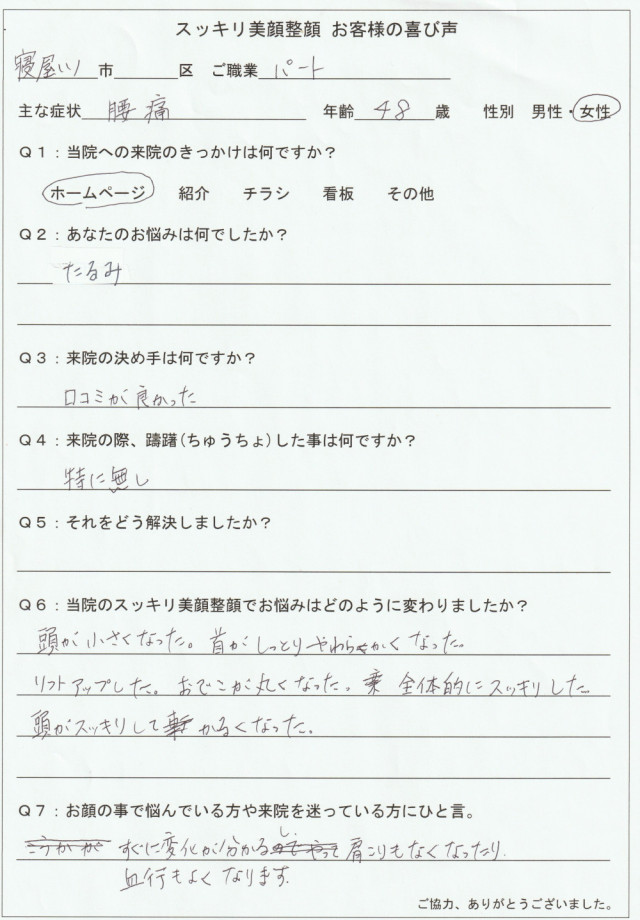 スッキリ美顔整顔 お客様の喜び声
寝屋川市 区 ご職業 パート
主な症状 腰痛 年齢 48 歳 性別 男性・女性
Q1：当院への来院のきっかけは何ですか？
ホームページ 紹介 チラシ 看板 その他
Q2：あなたのお悩みは何でしたか？
たるみ
Q3：来院の決め手は何ですか？
口コミが良かった
Q4：来院の際、躊躇（ちゅうちょ）した事は何ですか？
特に無し
Q5：それをどう解決しましたか？
Q6：当院のスッキリ美顔整顔でお悩みはどのように変わりましたか？
頭が小さくなった。首がしっとりやわらかくなった。
リフトアップした。おでこが丸くなった。全体的にスッキリした
頭がスッキリしてかるくなった。
Q7：お顔の事で悩んでいる方や来院を迷っている方にひと言。
すぐに変化が分かるし、肩こりもなくなったり、
血行もよくなります。
ご協力、ありがとうございました。